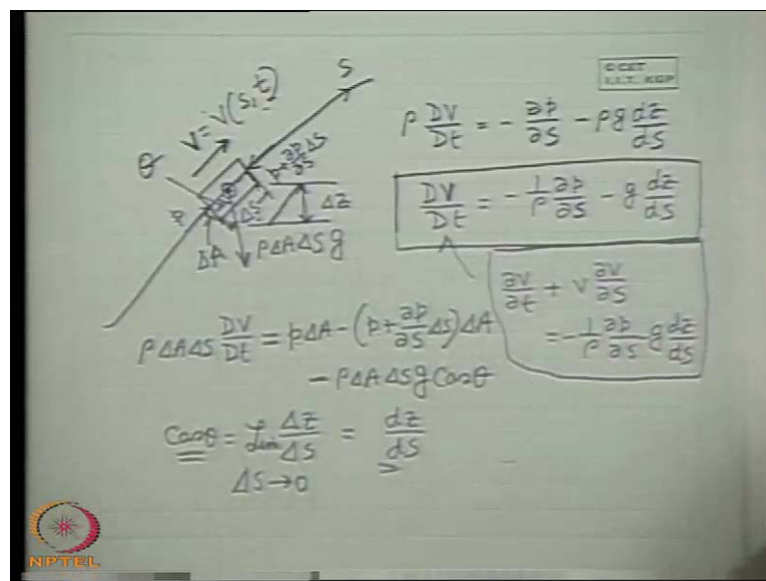 © CET
I.I.T. KGP
S
V = V(s, t)
θ
p + ∂p/∂s ΔS
ΔS
ΔZ
p
ΔA
ρΔAΔSg
ρ DV/Dt = - ∂p/∂s - ρg dz/ds
DV/Dt = - 1/ρ ∂p/∂s - g dz/ds
∂v/∂t + v ∂v/∂s
= - 1/ρ ∂p/∂s - g dz/ds
ρΔAΔS DV/Dt = pΔA - (p + ∂p/∂s ΔS)ΔA
- ρΔAΔSg Cosθ
Cosθ = Lim ΔZ/ΔS = dz/ds
ΔS → 0
NPTEL